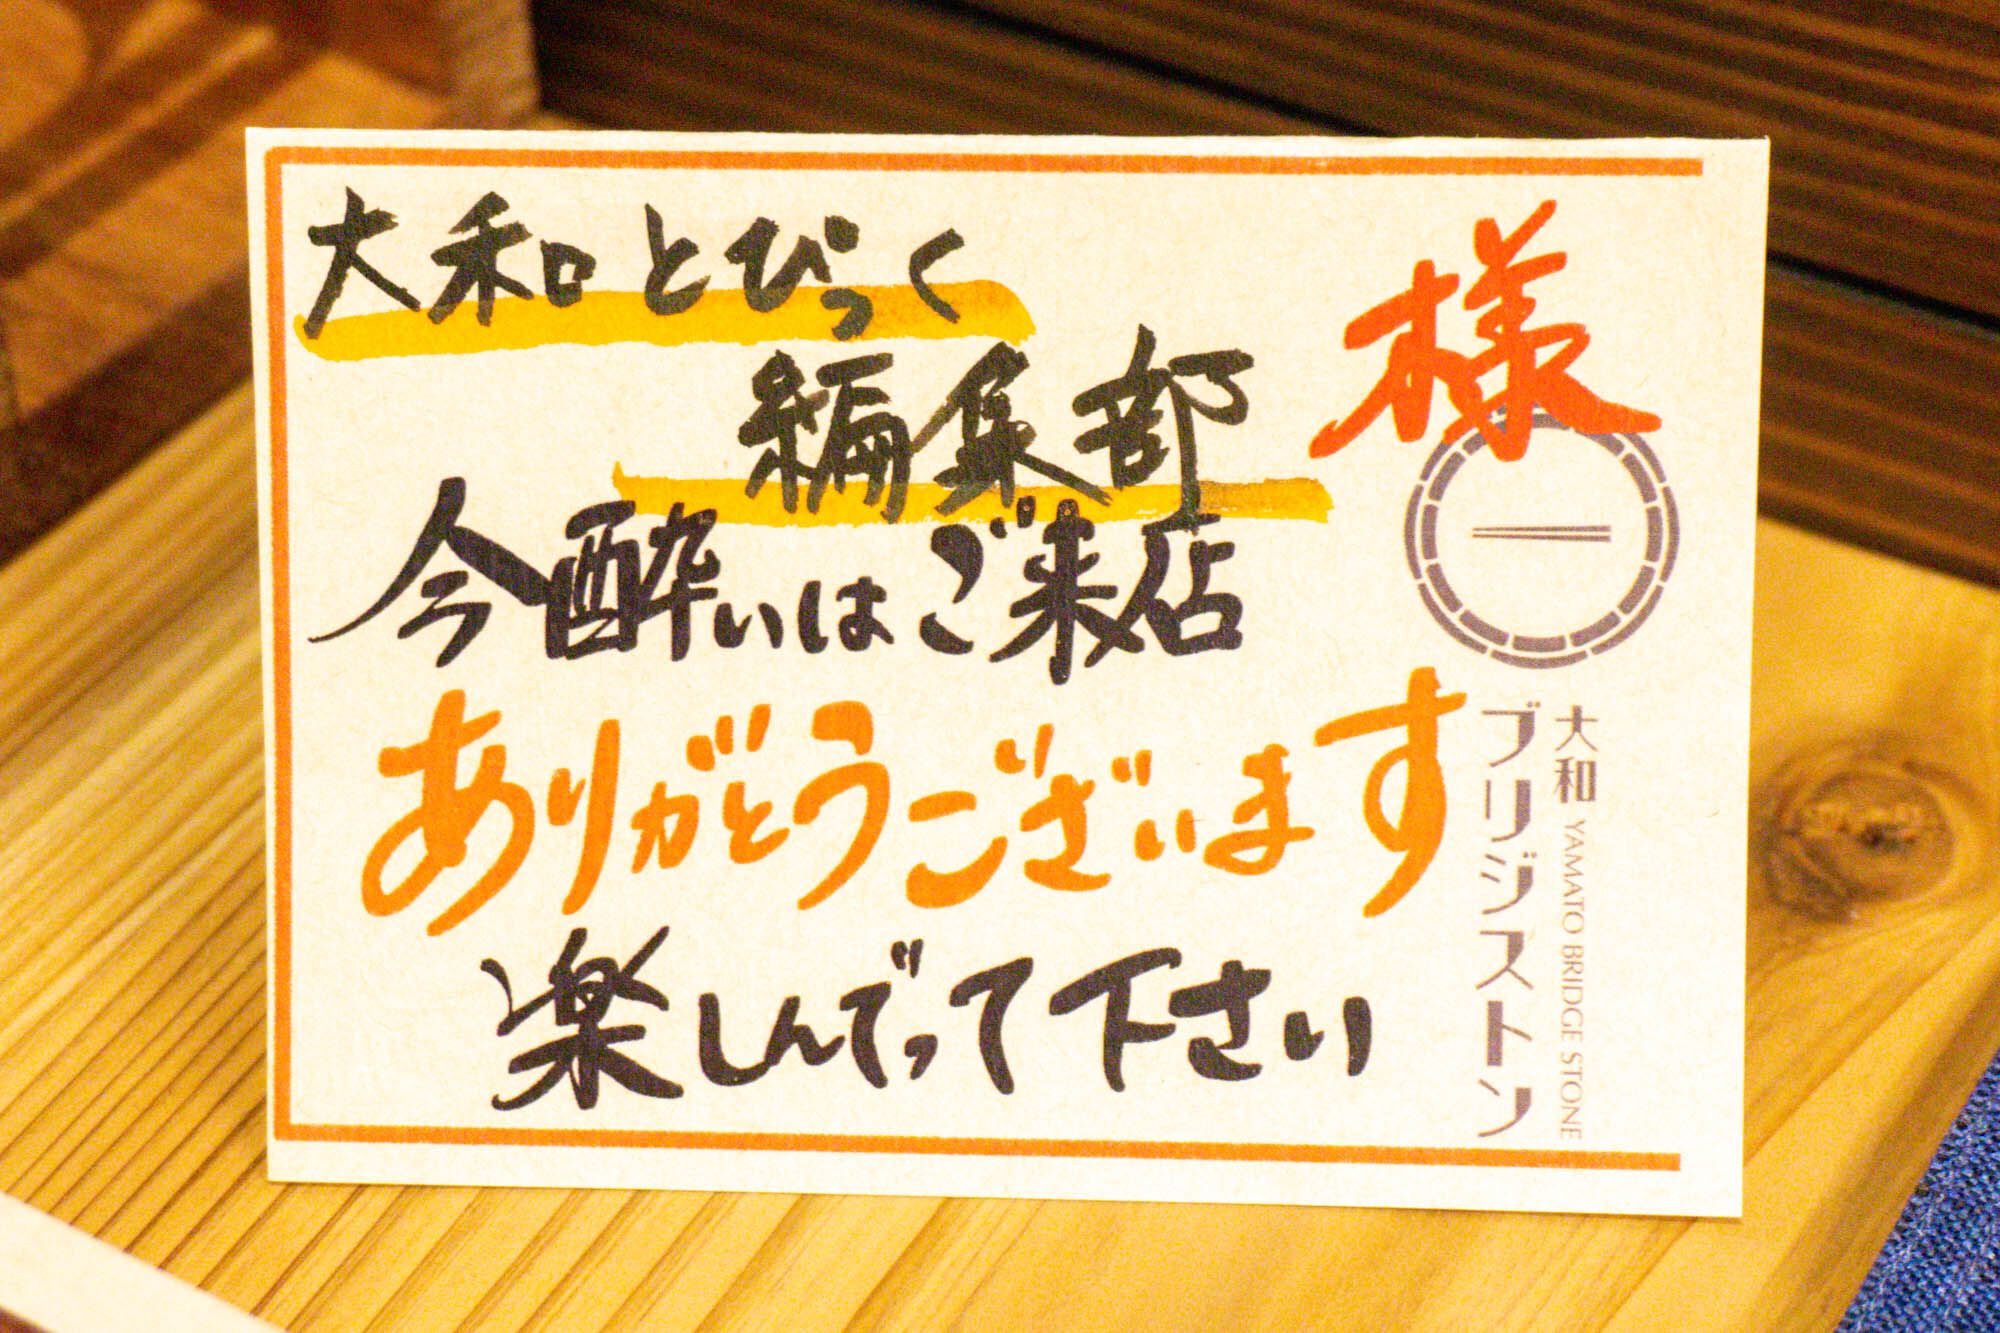 大和とぴっく
編集部
様
今酔いはご来店
ありがとうございます
楽しんでって下さい
大和 YAMATO BRIDGE STONE
ブリジストン